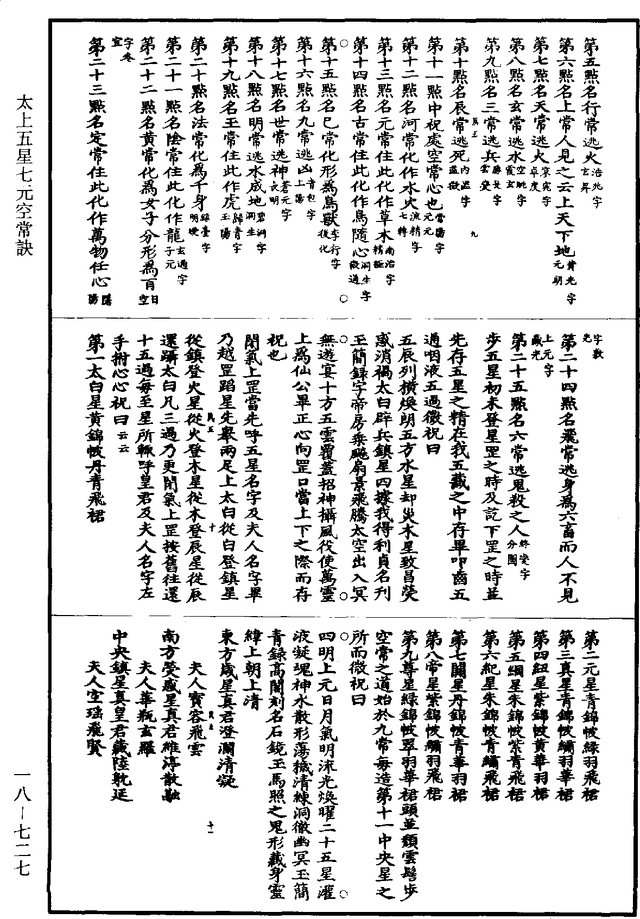 太上五星七元空常訣
第五點名行常逃火浩光字玄昇
第六點名上常人見之云上天下地黃光字元朝
第七點名天常逃火寂寂字卓度
第八點名玄常逃水空眺字霞玄
第九點名三常逃兵勝戈字雲變
第十點名辰常逃死內滋字滋獄
第十一點中祝處空常心也常陽字元元
第十二點名河常化作水火演精字七轉
第十三點名元常住此化作草木南治字精極
第十四點名古常住此化作鳥隨心洞生字微通
第十五點名巳常化形為鳥獸李行字後化
第十六點名九常逃凶青包字上陽
第十七點名世常逃神蒼元字長明
第十八點名明常逃水成地碧洞字洞生
第十九點名王常住此作虎歸青字王陽
第二十點名法常化為千身綠臺字明映
第二十一點名陰常住此化作龍玄過字子元
第二十二點名黃常化為女子分形為百日空
字奏宣
第二十三點名定常住此化作萬物任心隱陽
字數光
第二十四點名飛常逃身為六畜而人不見
上元字藏光
第二十五點名六常逃鬼殺之人解變字分圖
步五星初未登星罡之時及訖下罡之時並
先存五星之精在我五藏之中存畢叩齒五
過咽液五過微祝曰
五辰列橫煥朗五方水星却災木星致昌熒
惑消禍太白辟兵鎮星四據我得利貞名刊
玉簡錄字帝房乘飈扇景飛騰太空出入冥
無遊宴十方五雲覆蓋招神攝風役使萬靈
上為仙公畢正心向罡口當上下之際而存
祝也
閉氣上罡當先呼五星名字及夫人名字畢
乃越罡蹈星先舉兩足上太白從白登鎮星
從鎮登火星從火登木星從木登辰星從辰
還躡太白凡三過乃更閉氣上罡按舊往還
十五過每至星所輒呼皇君及夫人名字左
手拊心心祝曰云云
第一太白星黃錦帔丹青飛裙
第二元星青錦帔綠羽飛裙
第三真星青錦帔繡羽華裙
第四紐星紫錦帔黃華羽裙
第五綱星朱錦帔紫青飛裙
第六紀星朱錦帔青繡飛裙
第七關星丹錦帔青華羽裙
第八帝星紫錦帔繡羽飛裙
第九尊星綠錦帔翠羽華裙頭並頹雲髻步
空常之道始於九常每造第十一中央星之
所而微祝曰
四明上元日月氣明流光煥曜二十五星灌
液凝魂神水散形蕩穢清練洞徹幽冥玉簡
青錄高閣刻名石鏡玉馬照之鬼形藏身靈
緯上朝上清
東方歲星真君澄瀾清凝
夫人寶容飛雲
南方熒惑星真君維淳散融
夫人華瓶玄羅
中央鎮星真皇君藏陸躭延
夫人空瑤飛賢
一八—七二七